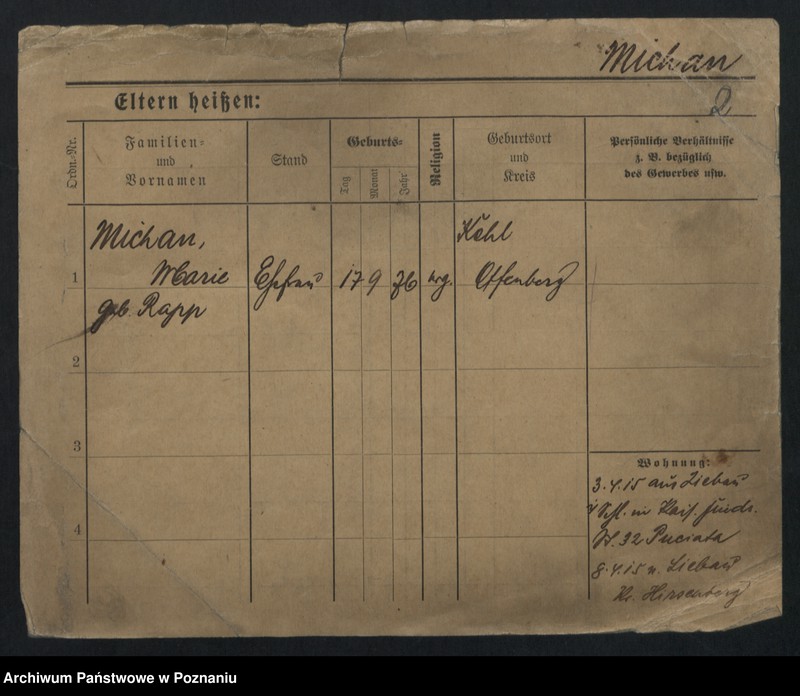 Michan
2
Eltern heißen:
Ordn.-Nr.
Familien-
und
Vornamen
Stand
Geburts-
Tag
Monat
Jahr
Religion
Geburtsort
und
Kreis
Persönliche Verhältnisse
z. B. bezüglich
des Gewerbes usw.
Michan, Kehl
1 Marie Ehefrau 17 9 76 Offenberg
geb. Rapp
2
3
4
Wohnung:
3.4.15 aus Liebau
i/Schl. in Kais. Friedr.
32 Puciata
8.4.15 n. Liebau
Kr.
Archiwum Państwowe w Poznaniu